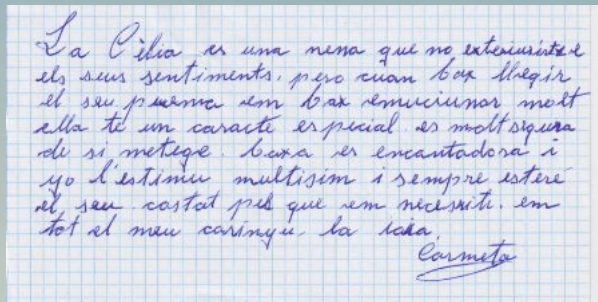 La Cèlia es una nena que no exterioriza
els seus sentiments, pero cuan bax llegir
el seu puema em bax emuciunar molt
ella te un caracte especial. es molt sigura
de si metege. baxa es encantadora i
yo l'estimu multisim i sempre esteré
el seu costat pel que em necesiti. em
tot el meu carinyu. la iaia.
Carmeta